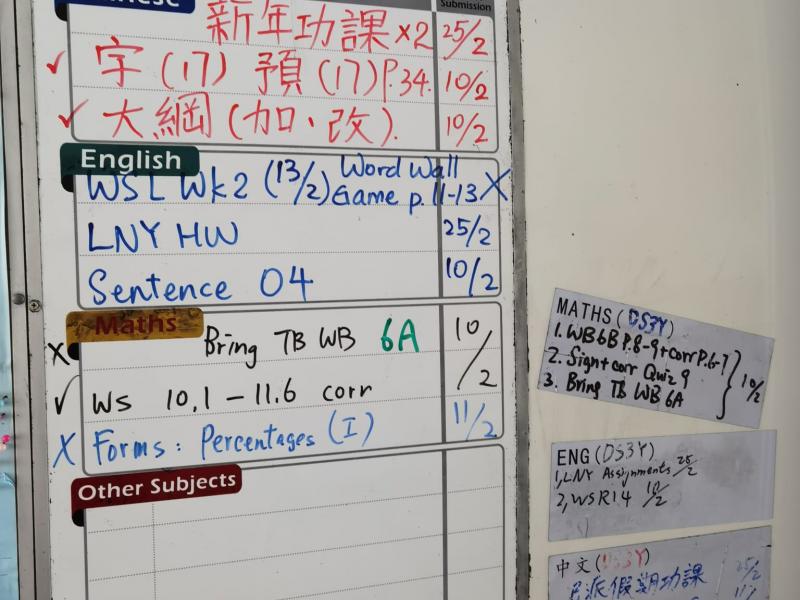 Submission
新年功課×2 25/2
✓ 字(17) 預(17)P.34. 10/2
✓ 大綱(加、改). 10/2
English
WSL Wk2 (13/2) Word Wall Game p. 11-13 X
LNY HW 25/2
Sentence 04 10/2
Maths
X Bring TB WB 6A 10/2
✓ WS 10.1 – 11.6 corr
X Forms: Percentages (I) 11/2
Other Subjects
MATHS (DS3Y)
1. WB6B P.8-9+corrP.6-7
2. Sign+corr Quiz 9
3. Bring TB WB 6A
} 10/2
ENG (DS3Y)
1, LNY Assignments 25/2
2, WSR14 10/2
中文(DS3Y)
已派假期功課 25/2